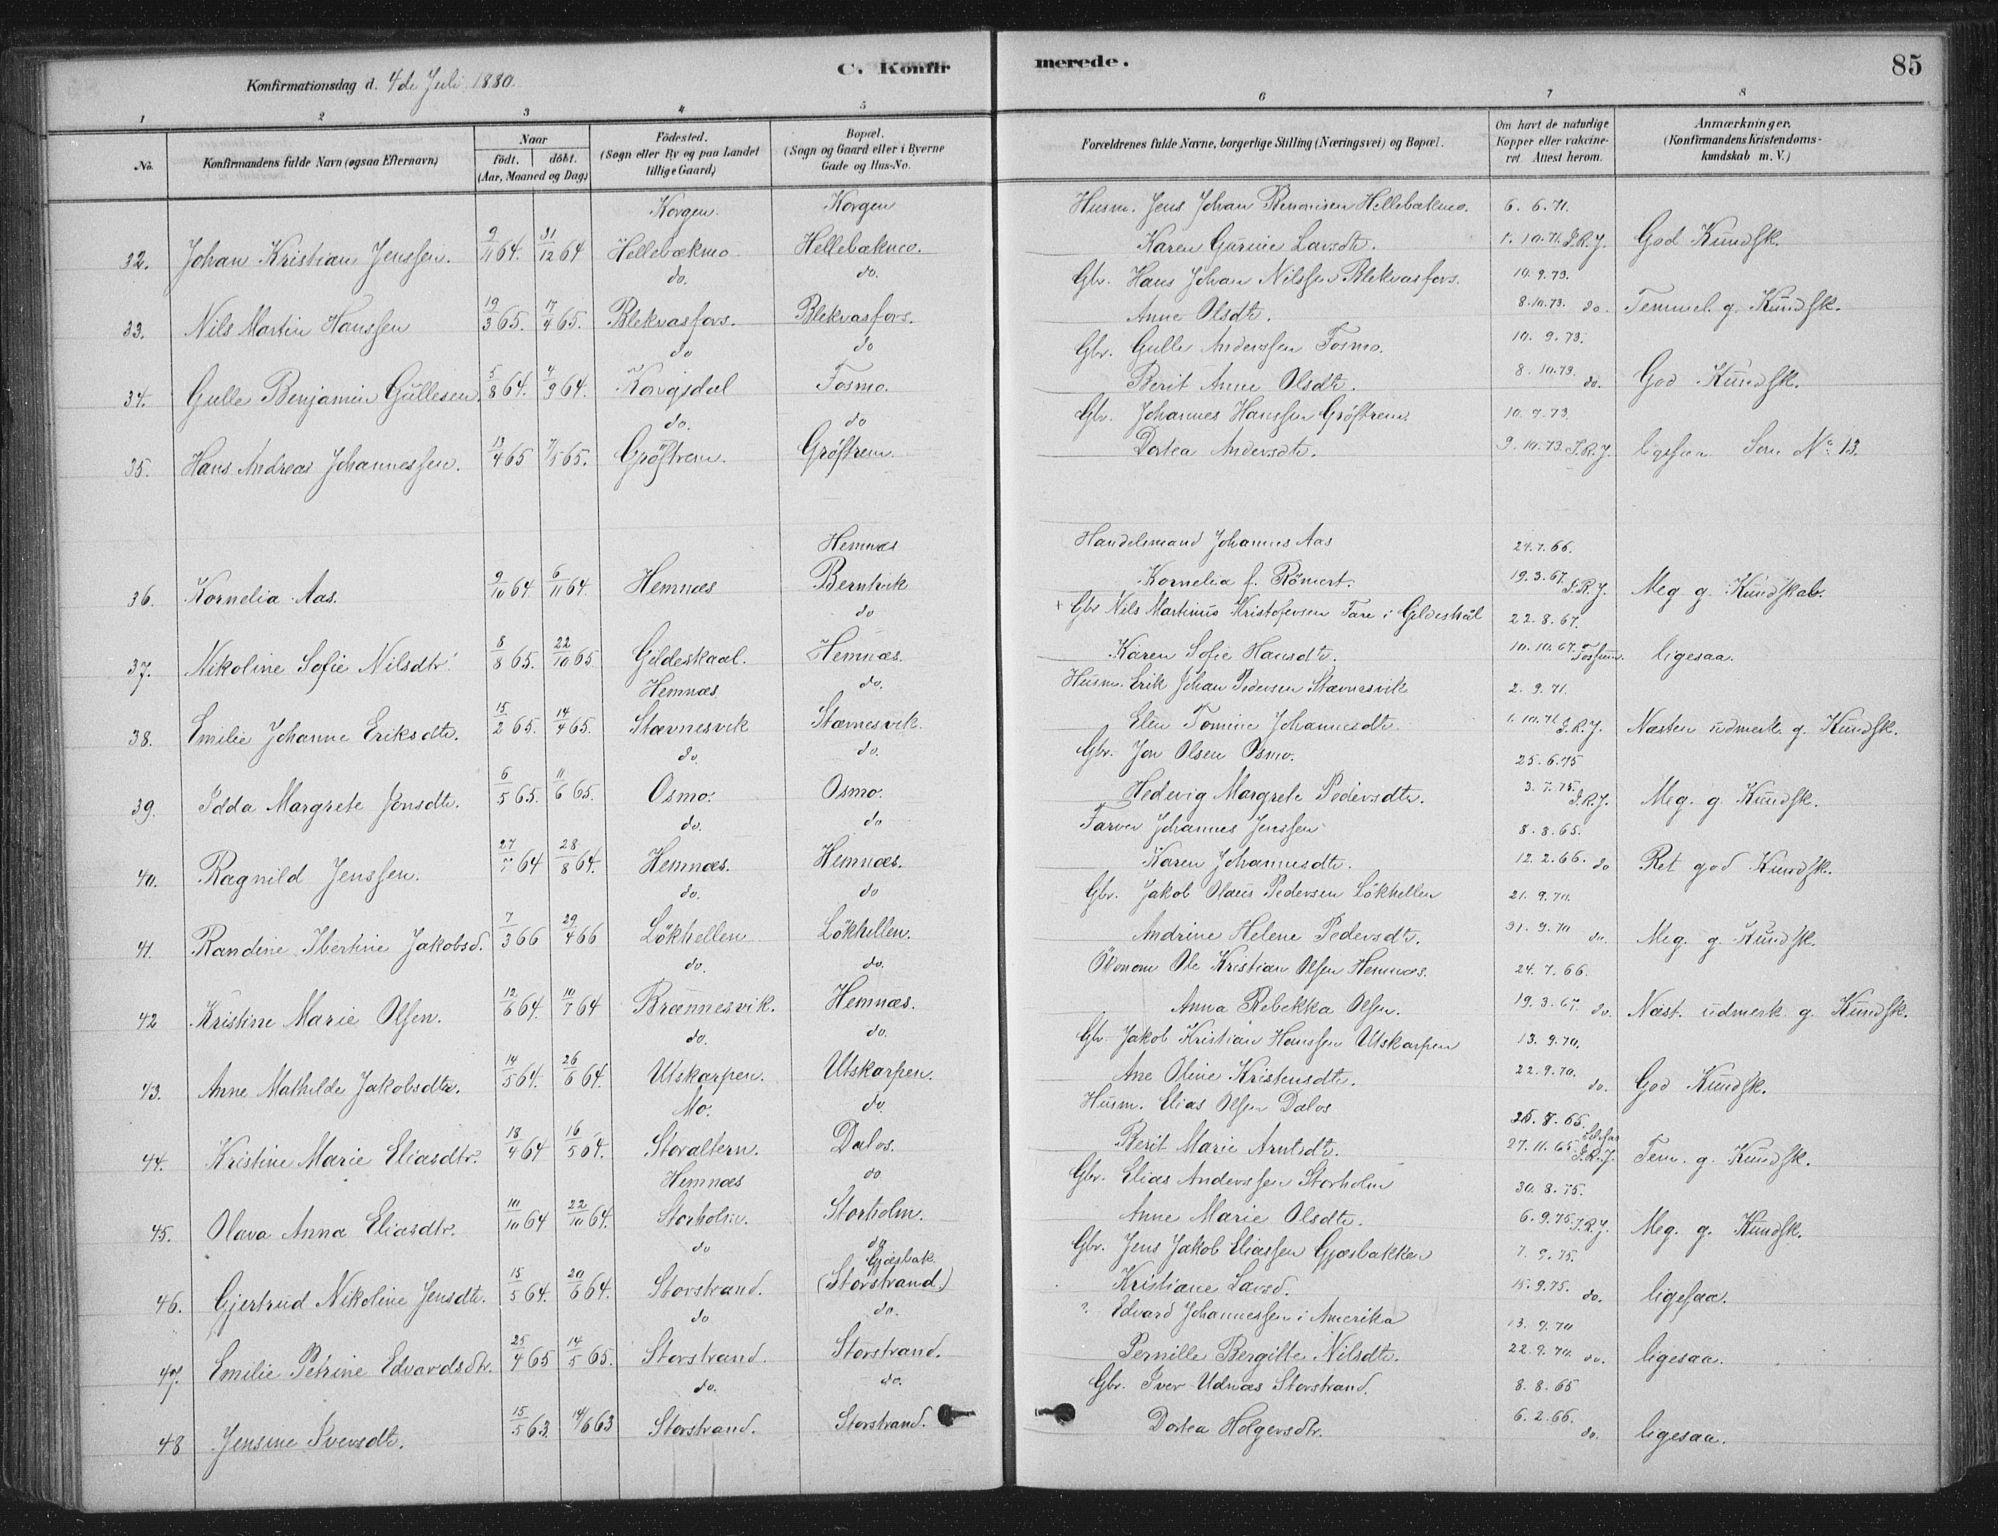 Konfirmationsdag d. 4de Juli 1880.
C. Konfirmerede.
85
1 2 3 4 5 6 7 8
No. Konfirmandens fulde Navn (ogsaa Efternavn) Naar født. døbt. (Aar, Maaned og Dag) Fødested. (Sogn eller By og paa Landet tillige Gaard) Bopæl. (Sogn og Gaard eller i Byerne Gade og Hus-No. Forældrenes fulde Navne, borgerlige Stilling (Næringsvei) og Bopæl. Om havt de naturlige Kopper eller vakcineret. Attest herom. Anmærkninger. (Konfirmandens Kristendomskundskab m. V.)
Korgen. Korgen Husm. Jens Johan Hellebækmo. 6. 6. 71.
32. Johan Kristian Jenssen. 9/11 64. 31/12 64 Hellebækmo. Hellebækmo. Karen Gurine Larsdtr. 1. 10. 71. J.R.J. God Kundsk.
do. do. Gbr. Hans Johan Nilssen Blekvasfors. 10. 9. 73.
33. Nils Martin Hanssen 19/3 65. 17/4 65. Blekvasfors. Blekvasfors. Anne Olsdtr. 8. 10. 73. do. Temmel. g. Kundsk.
do do Gbr. Gulle Anderssen Fosmo. 10. 9. 73.
34. Gulle Benjamin Gullesen. 5/8 64. 4/9 64. Korgsdal Fosmo. Berit Anne Olsdtr. 8. 10. 73. do. God Kundsk.
do. do Gbr. Johannes Hanssen Grøftrem. 10. 9. 73.
35. Hans Andreas Johannessen. 13/4 65 7/5 65. Grøftrem. Grøftrem. Dortea Andersdtr. 9. 10. 73. J.R.J. ligesaa Som No 13.
Hemnæs Handelsmand Johannes Aas 24. 7. 66.
36. Kornelia Aas. 9/10 64. 6/11 64. Hemnæs Berntvik Kornelia f. Römert. 19. 3. 67. J.R.J. Meg g. Kundskab.
do + Gbr Nils Martinus Kristofersen i Gildeskål 22. 8. 67.
37. Nikoline Sofie Nilsdtr. 8/8 65. 22/10 65 Gildeskaal. Hemnæs. Karen Sofie Hansdtr. 10. 10. 67. ligesaa.
Hemnæs. do. Husm. Erik Johan Pedersen Stævnesvik 2. 9. 71.
38. Emilie Johanne Eriksdtr. 15/2 65. 14/4 65. Stævnesvik Stævnesvik. Elen Tomine Johannesdtr. 1. 10. 71. J.R.J. Næsten udmerk. g. Kundsk.
do. do. Gbr. Jon Olsen Osmo. 25. 6. 75
39. Idda Margrete Jonsdtr. 6/5 65. 11/6 65. Osmo. Osmo. Hedevig Margrete Pedersdtr. 3. 7. 75. J.R.J. Meg. g. Kundsk.
do. do Farver Johannes Jenssen 8. 8. 65.
40. Ragnild Jenssen. 27/7 64 28/8 64. Hemnæs. Hemnæs. Karen Johannesdtr. 12. 2. 66. do Ret god Kundsk.
do. do Gbr. Jakob Olaus Pedersen Løkhellen 21. 9. 70.
41. Randine Ibertine Jakobsd. 7/3 66 29/4 66 Løkhellen Løkhellen. Andrine Helene Pedersdtr. 31. 9. 70 do. Meg. g. Kundsk.
do. do. Økonom Ole Kristian Olsen Hemnæs. 24. 7. 66.
42 Kristine Marie Olsen. 12/6 64. 10/7 64 Brænnesvik. Hemnæs. Anna Rebekka Olsen. 19. 3. 67 do. Næst. udmerk. g. Kundsk.
do. do. Gbr. Jakob Kristian Hanssen Utskarpen 13. 9. 70.
43. Anne Mathilde Jakobsdtr. 14/5 64. 26/6 64. Utskarpen. Utskarpen. Ane Oline Kristensdtr. 22. 9. 70. do. God Kundsk.
Mo. do. Husm. Elias Olsen Dalos 25. 8. 65.
44. Kristine Marie Eliasdtr. 18/4 64 16/5 64. Storaltern. Dalos. Berit Marie Arntsdtr. 27. 11. 65. J.R.J. Tem. g. Kundsk.
Hemnæs do. Gbr. Elias Anderssen Storholm 30. 8. 75.
45. Olava Anna Eliasdtr. 10/10 64 22/10 64. Storholm. Storholm. Anne Marie Olsdtr. 6. 9. 75. J.R.J. Meg. g. Kundsk.
do do Gjæsbak. Gbr. Jens Jakob Eliassen Gjæsbakken 7. 9. 75.
46. Gjertrud Nikoline Jensdtr. 15/5 64. 20/6 64. Storstrand. (Storstrand.) Kristiane Larsd. 15. 9. 75. do. ligesaa.
do do. ? Edvard Johannessen i Amerika 13. 9. 70
47. Emilie Petrine Edvardsdtr. 25/4 65 14/5 65. Storstrand. Storstrand. Pernille Bergitte Nilsdtr. 22. 9. 70. do. ligesaa.
do. do. Gbr. Iver Udnæs Storstrand. 8. 8. 65
48 Jensine Iversdtr. 15/5 63. 14/6 63 Storstrand. Storstrand. Dortea Holgersdtr. 6. 2. 66. do. ligesaa.